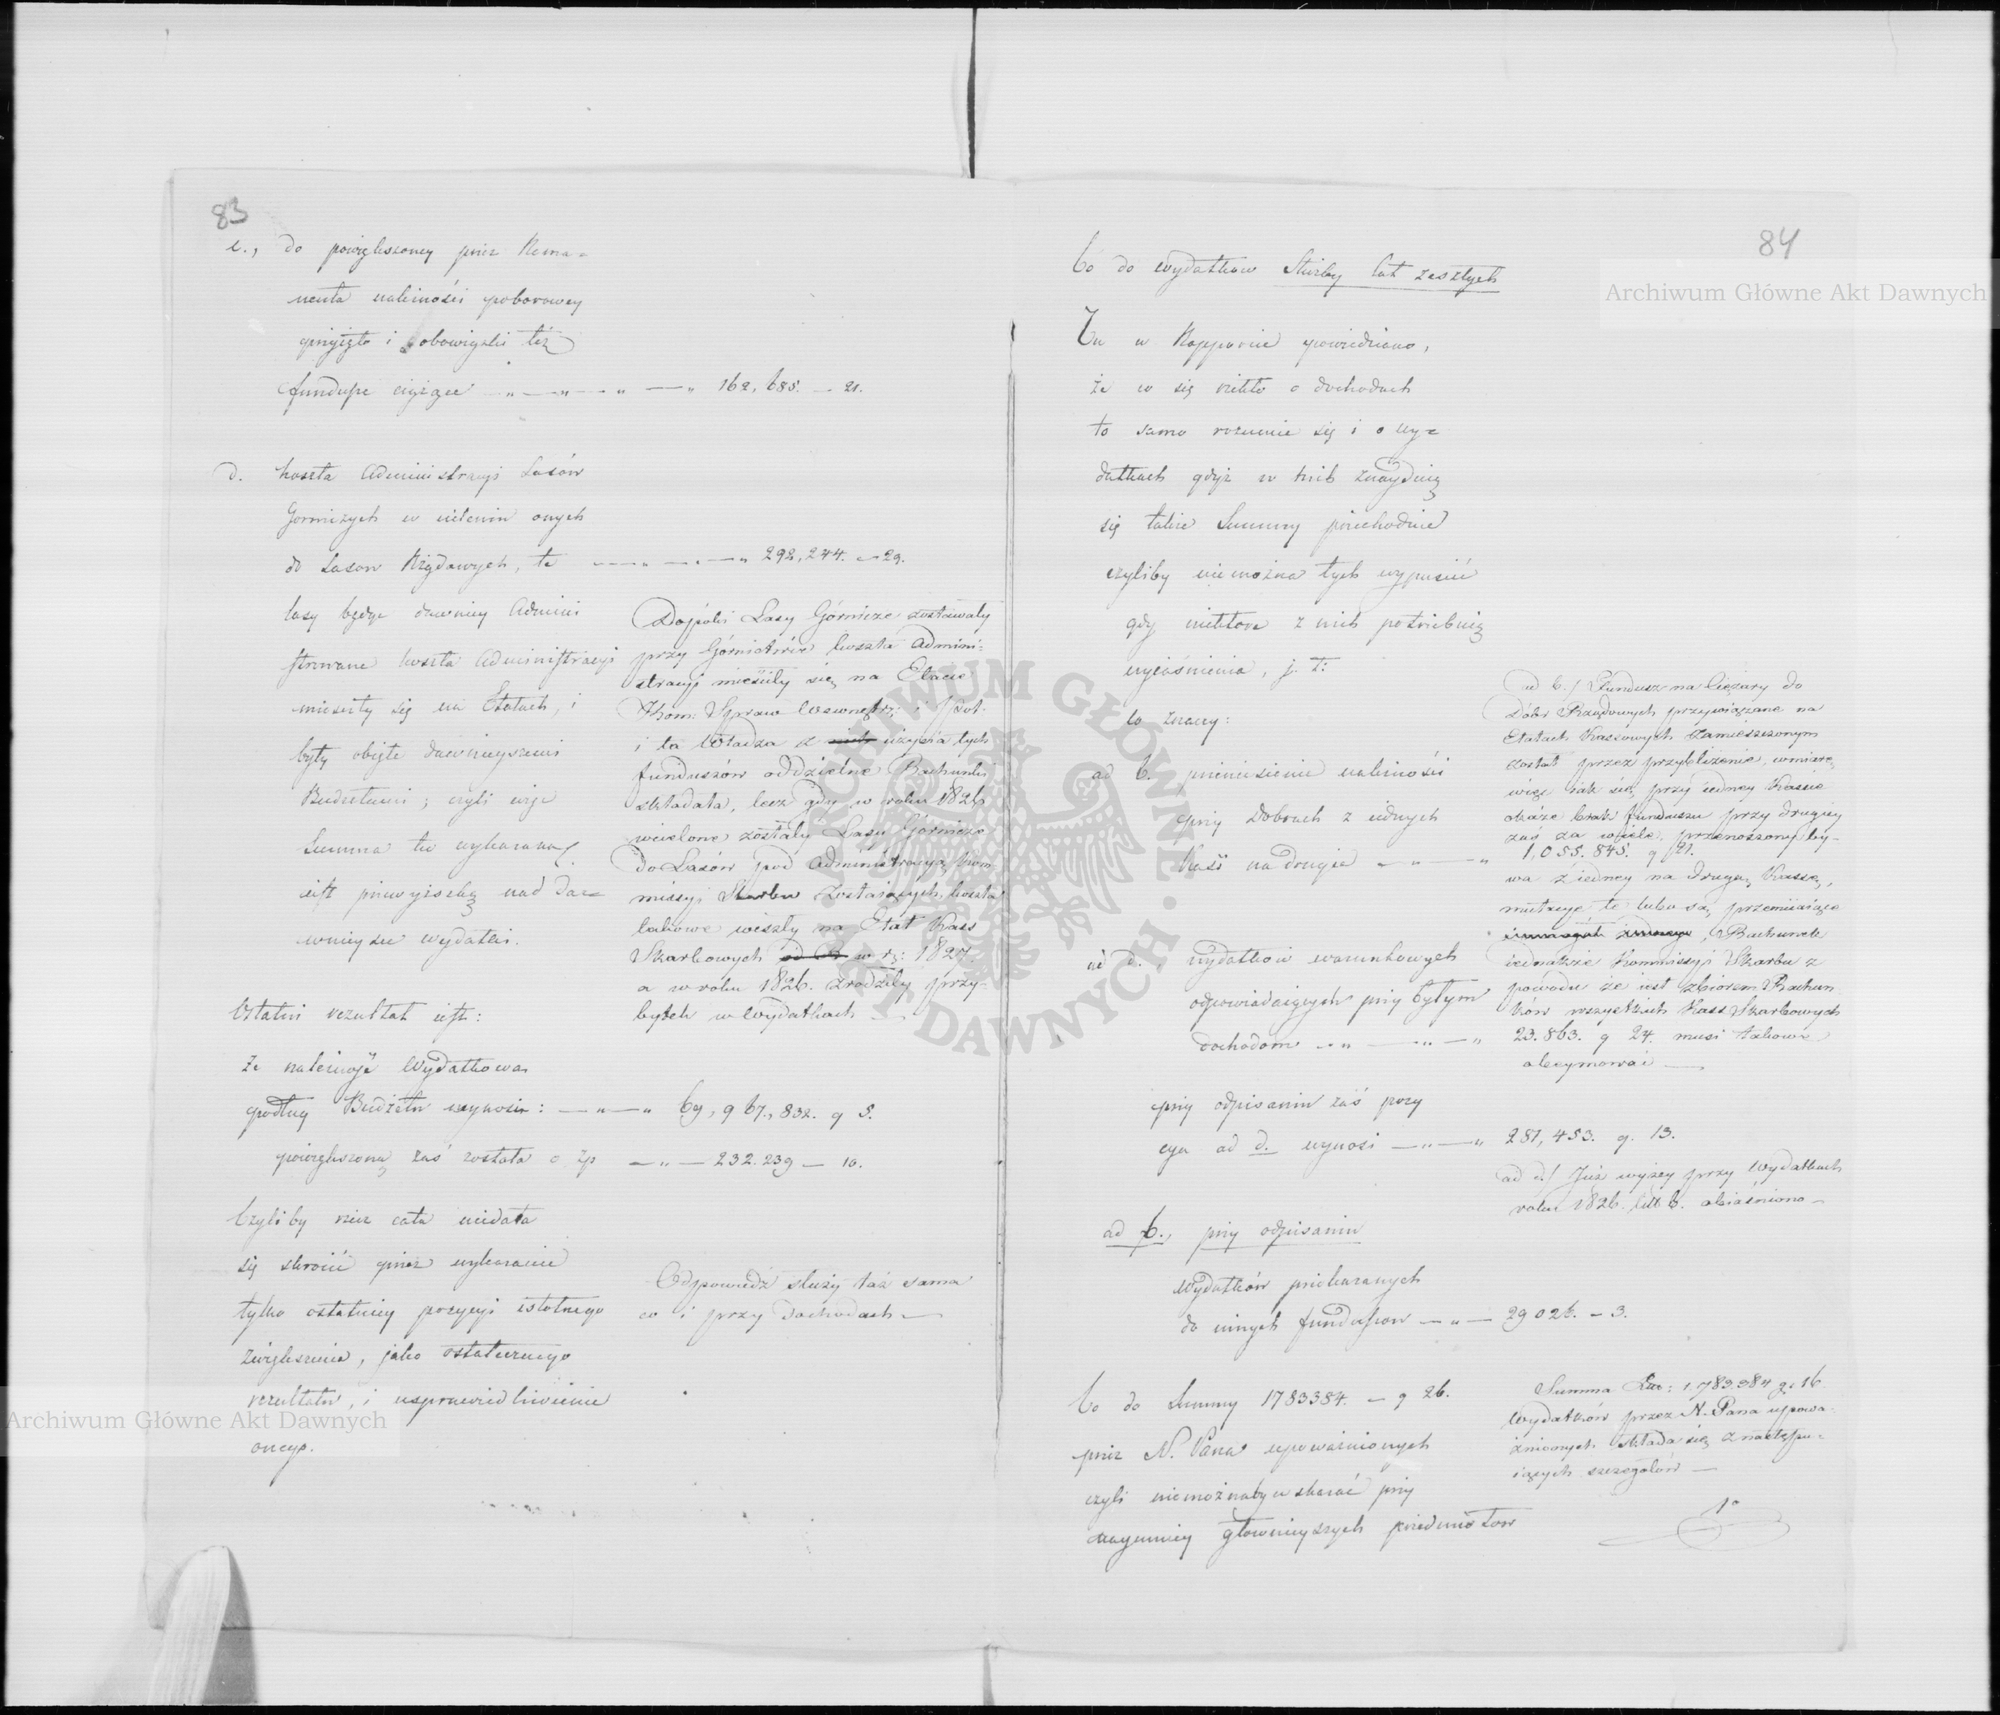 83
c., do powiększoney przez Rema-
nenta należności poborowey
przyięto i obowiązki też
fundusze ciążące 162,685. — 21.
d. koszta Administracyi Lasów
Górniczych w wcieleniu onych
do Lasow Rządowych, te 292,244. — 29.
lasy będąc dawniey Admini
strowane koszta Administracyi
mieściły się na Etatach, i
były obięte dawnieyszemi
Budżetami; czyli więc
Summa tu wykazana
iest przewyżką nad daw-
wnieysze wydatki.
Dopóki Lasy Górnicze zostawały
przy Górnictwie koszta Admini-
stracyi mieściły się na Etacie
Kom: Spraw Wewnętrz: i Pol.
i ta Władza z nich użycia tych
funduszów oddzielne Rachunki
składała, lecz gdy w roku 1826
wcielone zostały Lasy Górnicze
do Lasów pod Administracyą Kom-
missyi Skarbu zostaiących, koszta
takowe weszły na Etat Kass
Skarbowych w r: 1827.
a w roku 1826. zrodziły przy-
bytek w Wydatkach —
Ostatni rezultat iest:
że należność Wydatkowa
podług Budżetu wynosi: 69,967,832. g 5.
powiększoną zaś została o zp 232.239 — 10.
Czyliby rzecz cała niedała
się skrócić przez wykazanie
tylko ostatniey pozycyi istotnego
zwiększenia, jako ostatecznego
rezultatu, i usprawiedliwienie
onego.
Odpowiedź służy taż sama
co i przy Dochodach —
84
Co do wydatkow Służby lat zeszłych
Tu w Rapporcie powiedziano,
że co się rzekło o dochodach
to samo rozumie się i o wy-
datkach gdyż w nich znayduią
się takie Summy przechodnie
czyliby niemożna tych wypuścić
gdy niektore z nich potrzebuią
wyiaśnienia, j. t:
to znaczy:
ad b. przeniesienie należności
przy Dobrach z iednych
Kass na drugie 1,055.845. g 21.
ad b./ Fundusz na ciężary do
Dóbr Rządowych przywiązane na
Etatach Kassowych zamieszczonym
został przez przybliżenie, w miarę
więc iak się przy iedney Kassie
okaże brak funduszu przy drugiey
zaś za wiele, przenoszony by-
wa z iedney na drugą Kassę,
mutacye te lubo są przemiiaiące
, Rachunek
iednakże Kommissyi Skarbu z
powodu że iest zbiorem Rachun
ków wszystkich Kass Skarbowych
musi takowe
obeymować —
ad d. wydatkow warunkowych
odpowiadaiących przy byłym
dochodom 23.863. g 24.
przy odpisaniu zaś pozy
cya ad d. wynosi 281,453. g. 13.
ad d./ Już wyżey przy Wydatkach
roku 1826. litt b. obiaśniono —
ad b., przy odpisaniu
Wydatków przekazanych
do innych funduszow 29026. — 3.
Co do Summy 1783384. — g 26.
przez N. Pana upoważnionych
czyli niemożnaby wskazać przy
naymniey głownieyszych przedmiotow
Summa Zło: 1,783.384 g. 16
Wydatków przez N. Pana upowa-
żnionych składa się z następu-
iących szczegołów —
1°
Archiwum Główne Akt Dawnych
Archiwum Główne Akt Dawnych
ARCHIWUM GŁÓWNE AKT DAWNYCH